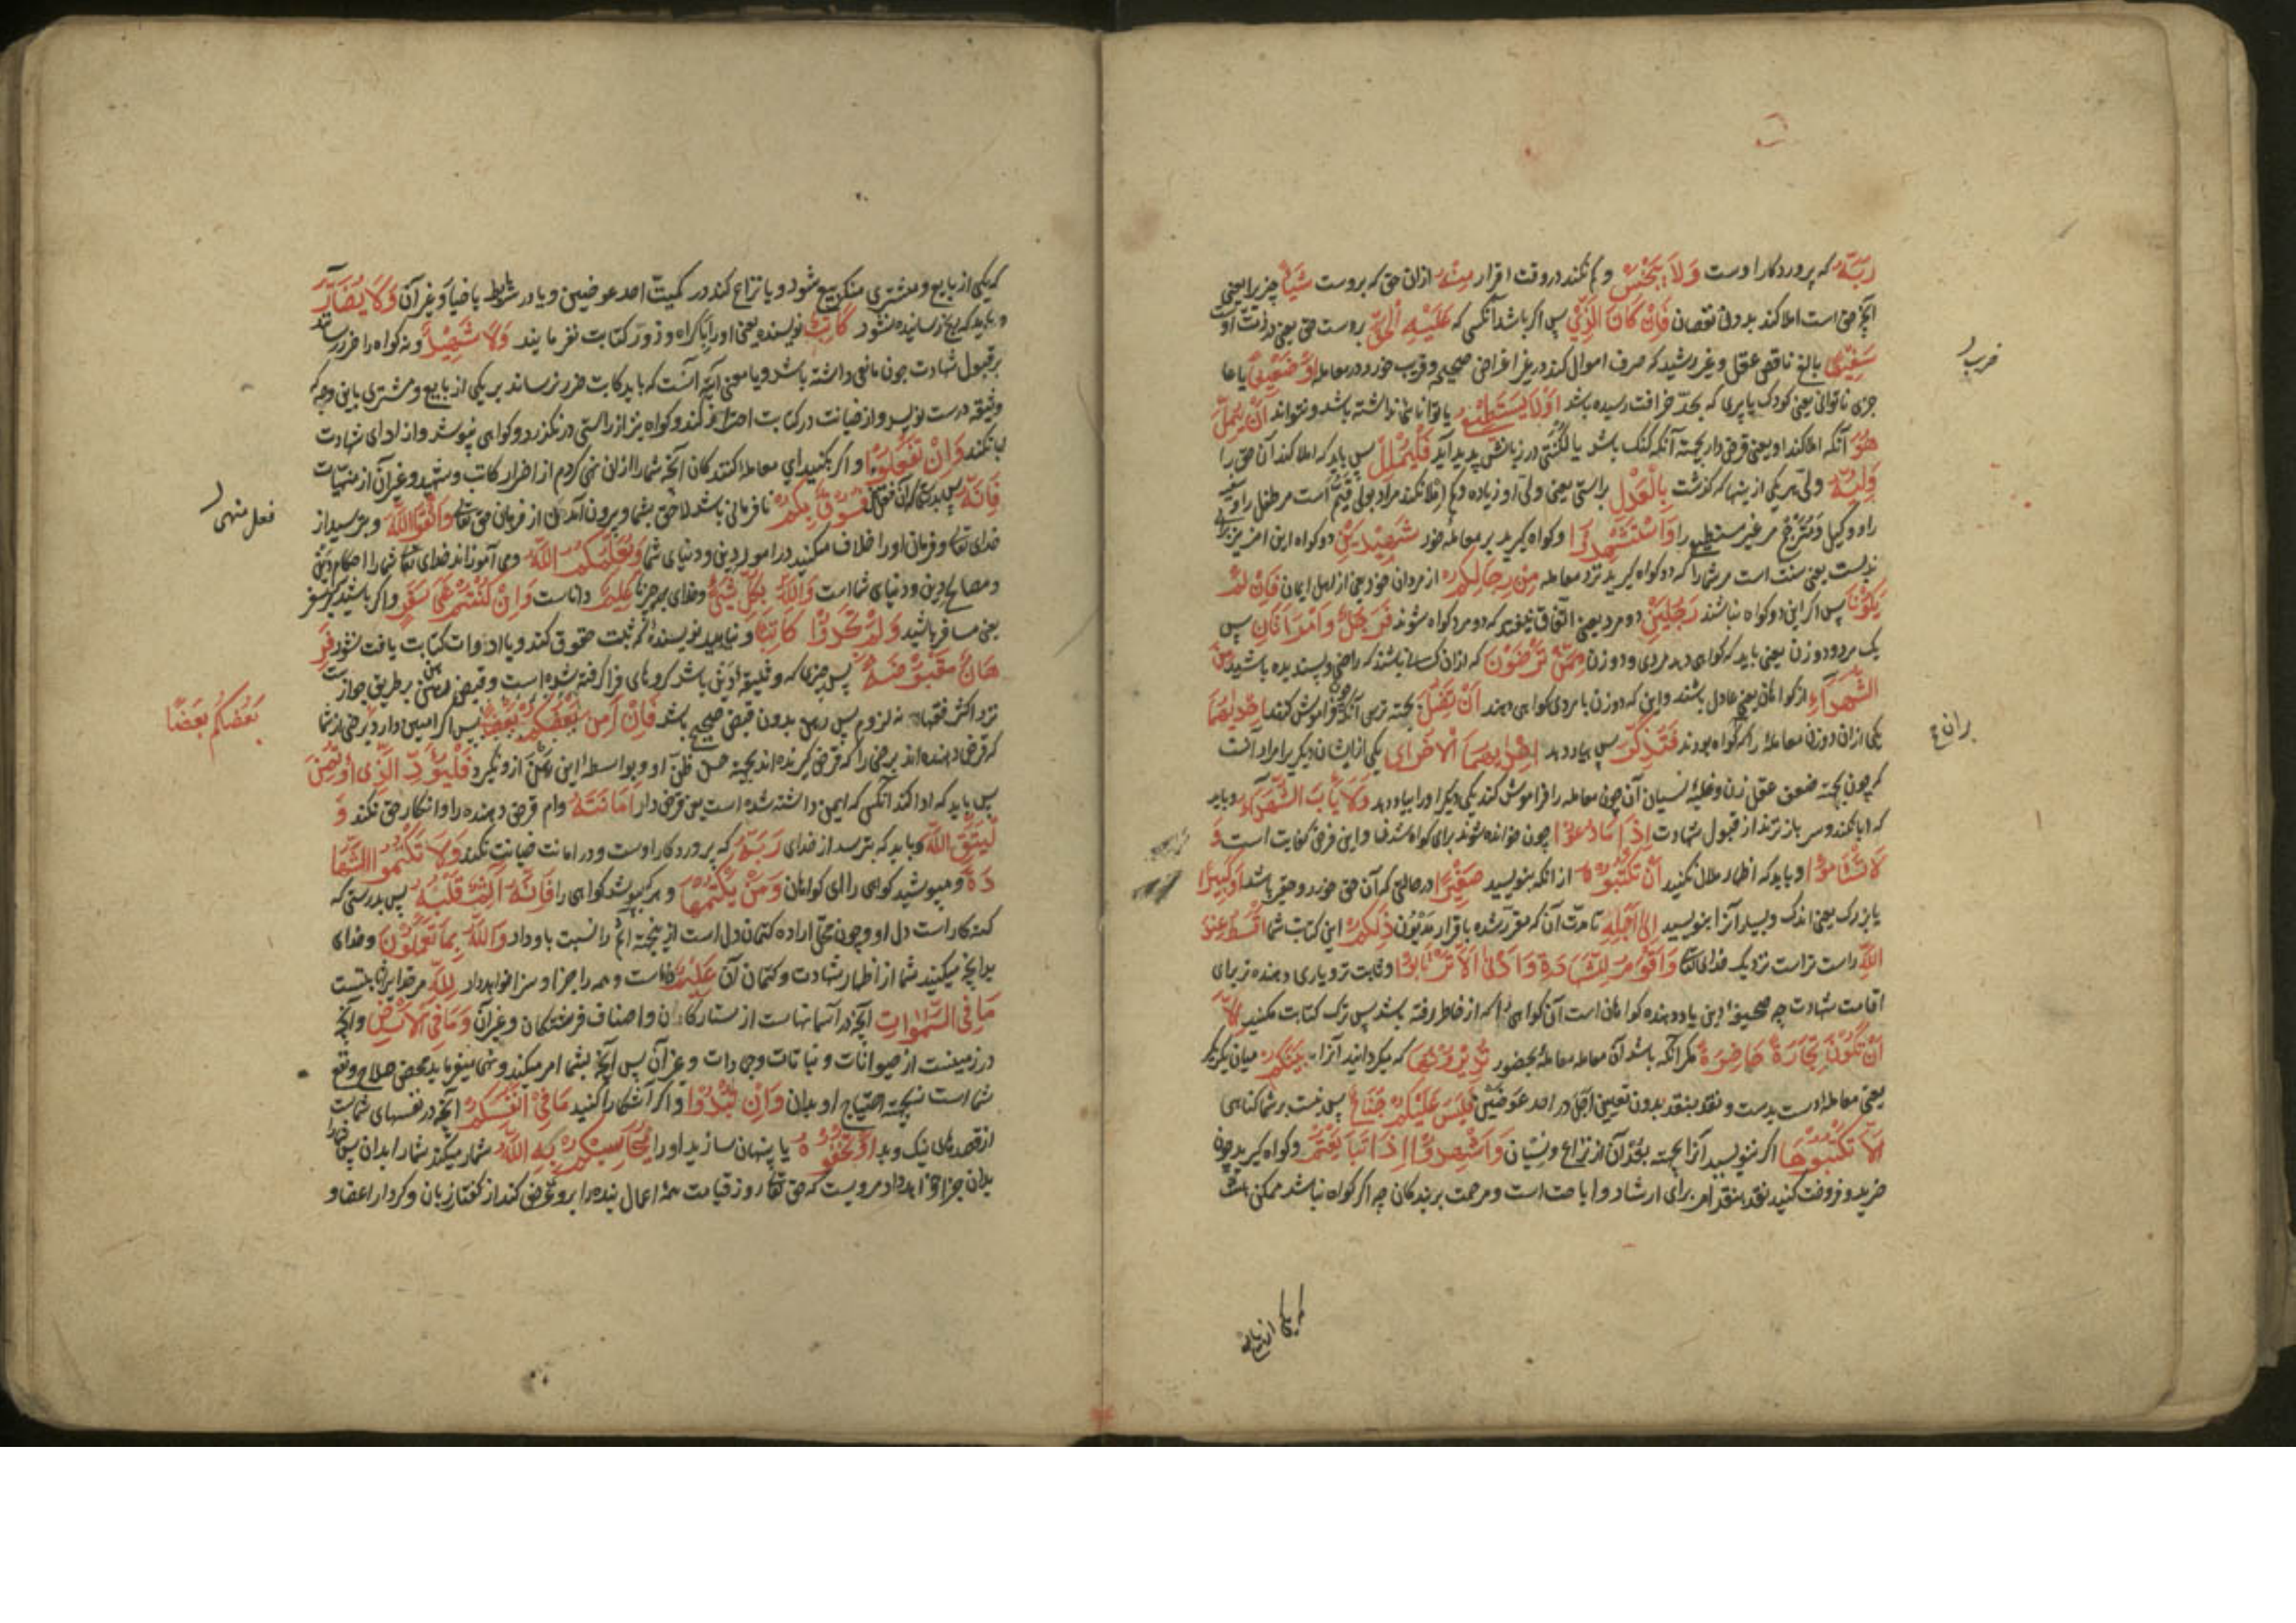 رَبَّهُ که پروردکار اوست وَلَا یَبْخَسْ و کم نکند در وقت اقرار مِنْهُ ازان حق که بروست شَیْئًا چیزیرا یعنی
آنچه حق است املا کند بدون نقصان فَاِنْ کَانَ الَّذِی پس اکر باشد آنکسی که عَلَیْهِ الْحَقُّ بروست حق یعنی در ذمّت او
سَفِیْهًا بالغ ناقص عقل و غیر رشید که صرف اموال کند در غیر اغراض صحیحه و فریب خورد در معامله اَوْ ضَعِیْفًا یا عا
جزی ناتوانی یعنی کودک یا پیری که بحدّ خرافت رسیده باشد اَوْلَا یَسْتَطِیْعُ یا توانائی نداشته باشد و نتواند اَنْ یُمِلَّ
هُوَ آنکه املا کند او یعنی قرض دار بجهة آنکه کنک باشد یا لکنتی در زبانش پدید آید فَلْیُمْلِلْ پس باید که املا کند آن حق را
وَلِیُّهُ ولیّ هر یکی از ینها که کذشت بِالْعَدْلِ براستی یعنی ولیّ او زیاده و کم املا نکند مراد بولی قیّم است مر طفل را و سفیه
را و وکیل و مترجم مر غیر مستطیع را وَاسْتَشْهِدُوْا و کواه کیرید بر معامله خود شَهِیْدَیْنِ دو کواه این امر نیز برای
ندبست یعنی سنت است مر شما را که دو کواه کیرید نزد معامله مِنْ رِجَالِکُمْ از مردان خود یعنی از اهل ایمان فَاِنْ لَمْ
یَکُوْنَا پس اکر این دو کواه نباشند رَجُلَیْنِ دو مرد یعنی اتفاق نیفتد که دو مرد کواه شوند فَرَجُلٌ وَامْرَاَتَانِ پس
یک مرد و دو زن یعنی باید که کواهی دهد مردی و دو زن مِمَّنْ تَرْضَوْنَ که ازان کسانی باشند که راضی و پسندیده باشید مِنَ
الشُّهَدَاءِ از کواهان یعنی عادل باشند و این که دو زن با مردی کواهی دهند اَنْ تَضِلَّ بجهة ترس آنکه چون فراموش کند اِحْدٰیهُمَا
یکی ازان دو زن معامله را که کواه بودند فَتُذَکِّرَ پس بیاد دهد اِحْدٰیهُمَا الْاُخْرٰی یکی از ایشان دیکر را مراد آنست
که چون بجهة ضعف عقل زن و غلبهٔ نسیان آن چون معامله را فراموش کند یکی دیکر او را بیاد دهد وَلَا یَأْبَ الشُّهَدَاءُ و باید
که ابا نکند و سر باز نزند از قبول شهادت اِذَا مَا دُعُوْا چون خوانده شوند برای کواه شدن و این فرض کفایت است وَ
لَا تَسْاَمُوْا و باید که اظهار ملال نکنید اَنْ تَکْتُبُوْهُ از آنکه بنویسید صَغِیْرًا در حالتی که آن حق خورد و حقیر باشد اَوْکَبِیْرًا
یا بزرک یعنی اندک و بسیار آنرا بنویسید اِلٰی اَجَلِهِ تا مدّت آن که مقرّر شده باقرار مدیون ذٰلِکُمْ این کتابت شما اَقْسَطُ عِنْدَ
اللّٰهِ راست تر است نزدیک خدای تعا وَاَقْوَمُ لِلشَّهَادَةِ وَاَدْنٰی اَلَّا تَرْتَابُوْا و ثابت تر و یاری دهنده تر برای
اقامت شهادت چه صحیفهٔ دین یاد دهنده کواهان است آن کواهی را که از خاطر رفته باشد پس ترک کتابت مکنید اِلَّا
اَنْ تَکُوْنَ تِجَارَةً حَاضِرَةً مکر آنکه باشد آن معامله معاملهٔ بحضور تُدِیْرُوْنَهَا که میکردانید آنرا بَیْنَکُمْ میان یکدیکر
یعنی معامله دست بدست و نقد بنقد بدون تعیین اجل در احد عوضین فَلَیْسَ عَلَیْکُمْ جُنَاحٌ پس نیست بر شما کناهی
اَلَّا تَکْتُبُوْهَا اکر ننویسید آنرا بجهة بُعد آن از نزاع و نسیان وَاَشْهِدُوْا اِذَا تَبَایَعْتُمْ و کواه کیرید چون
خرید و فروخت کنید نقد بنقد امر برای ارشاد و اباحت است و مرحمت بر بندکان چه اکر کواه نباشد ممکن است
فریب
بران ع
که یکی از بایع
که یکی از بایع و مشتری منکر بیع شود و یا نزاع کند در کمیّت احد عوضین و یا در شرایط یا خیار و غیر آن وَلَا یُضَارَّ
و باید که رنج رسانیده نشود کَاتِبٌ نویسنده یعنی او را باکراه و زور کتابت نفرمایند وَلَا شَهِیْدٌ و نه کواه را ضرر رسانند
بر قبول شهادت چون مانعی داشته باشد و یا معنی آیه آنست که باید کاتب ضرر نرساند بر یکی از بایع و مشتری باین وجه که
وثیقه درست نویسد و از خیانت در کتابت احتراز کند و کواه نیز از راستی در نکذرد و کواهی نپوشد و از ادای شهادت
ابا نکند وَاِنْ تَفْعَلُوْا و اکر بکنید ای معامله کنندکان آنچه شما را ازان نهی کردم از اضرار کاتب و شهید و غیر آن از منهیّات
فَاِنَّهُ پس بدرستیکه آن فعل فُسُوْقٌ بِکُمْ نافرمانی باشد لاحق بشما و بیرون آمدن از فرمان حق تعالی وَاتَّقُوا اللّٰهَ و بترسید از
خدای تعا و فرمان او را خلاف مکنید در امور دین و دنیای شما وَیُعَلِّمُکُمُ اللّٰهُ و می آموزاند خدای تعا شما را احکام دین
و مصالح دین و دنیای شما است وَاللّٰهُ بِکُلِّ شَیْءٍ و خدای بهر چیز عَلِیْمٌ داناست وَاِنْ کُنْتُمْ عَلٰی سَفَرٍ و اکر باشید بر سفر
یعنی مسافر باشید وَلَمْ تَجِدُوْا کَاتِبًا و نیابید نویسندهٔ که ثبت حقوق کند و یا ادوات کتابت یافت نشود فَرِ
هَانٌ مَقْبُوْضَةٌ پس چیزی که وثیقه دین باشد کروهای فرا کرفته شده است و قبض رهن بر طریق جواز است
نزد اکثر فقها نه لزوم پس رهن بدون قبض صحیح باشد فَاِنْ اَمِنَ بَعْضُکُمْ بَعْضًا پس اکر امین دارد برخی از شما
که قرض دهنده اند برخی را که قرض کیرنده اند بجهة حسن ظنّ او و بواسطه این رهن ازو نکیرد فَلْیُؤَدِّ الَّذِی اؤْتُمِنَ
پس باید که ادا کند آنکس که امین داشته شده است یعنی قرض دار اَمَانَتَهُ وام قرض دهنده را و انکار حق نکند وَ
لْیَتَّقِ اللّٰهَ و باید که بترسد از خدای رَبَّهُ که پروردکار اوست و در امانت خیانت نکند وَلَا تَکْتُمُوا الشَّهَا
دَةَ و مپوشید کواهی را ای کواهان وَمَنْ یَکْتُمْهَا و هر که بپوشد کواهی را فَاِنَّهُ اٰثِمٌ قَلْبُهُ پس بدرستی که
کنه کار است دل او و چون محلّ اراده کتمان دل است ازینجهة اثم را نسبت باو داد وَاللّٰهُ بِمَا تَعْمَلُوْنَ و خدای
بدانچه میکنید شما از اظهار شهادت و کتمان آن عَلِیْمٌ داناست و همه را جزا و سزا خواهد داد لِلّٰهِ مر خدایراست
مَا فِی السَّمٰوَاتِ آنچه در آسمانهاست از ستارکان و اصناف فرشتکان و غیر آن وَمَا فِی الْاَرْضِ و آنچه
در زمینست از حیوانات و نباتات و جمادات و غیر آن پس آنچه بشما امر میکند و نهی میفرماید محض صلاح و نفع
شما است نه بجهة احتیاج او بدان وَاِنْ تُبْدُوْا و اکر آشکارا کنید مَا فِیْ اَنْفُسِکُمْ آنچه در نفسهای شماست
از قصدهای نیک و بد اَوْ تُخْفُوْهُ یا پنهان سازید او را یُحَاسِبْکُمْ بِهِ اللّٰهُ شمار میکند شما را بدان پس
بدان جزا خواهد داد مرویست که حق تعا روز قیامت همه اعمال بنده را برو عرض کند از کفتار زبان و کردار اعضا و
فعل منهی
بَعْضُکُمْ بَعْضًا